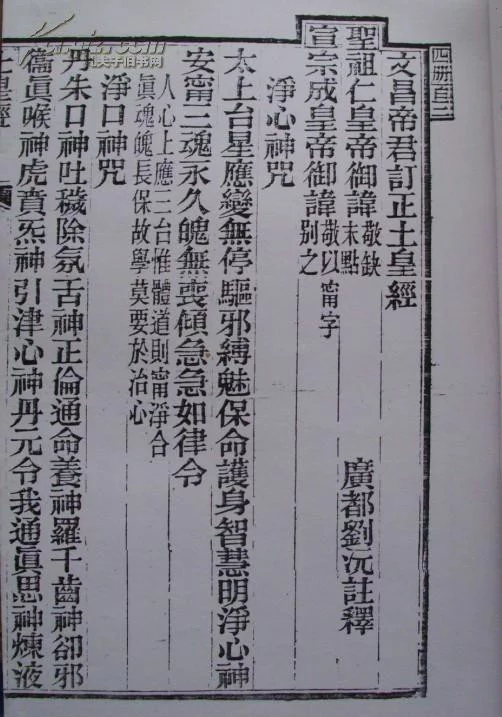 四册百二
文昌帝君訂正土皇經
聖祖仁皇帝御諱敬缺末點
廣都劉沅註釋
宣宗成皇帝御諱敬以甯字别之
淨心神咒
太上台星應變無停驅邪縛魅保命護身智慧明淨心神
安甯三魂永久魄無喪傾急急如律令
人心上應三台惟體道則甯淨合
眞魂魄長保故學莫要於治心
淨口神咒
丹朱口神吐穢除氛舌神正倫通命養神羅千齒神卻邪
衞眞喉神虎賁炁神引津心神丹元令我通眞思神煉液
土皇經